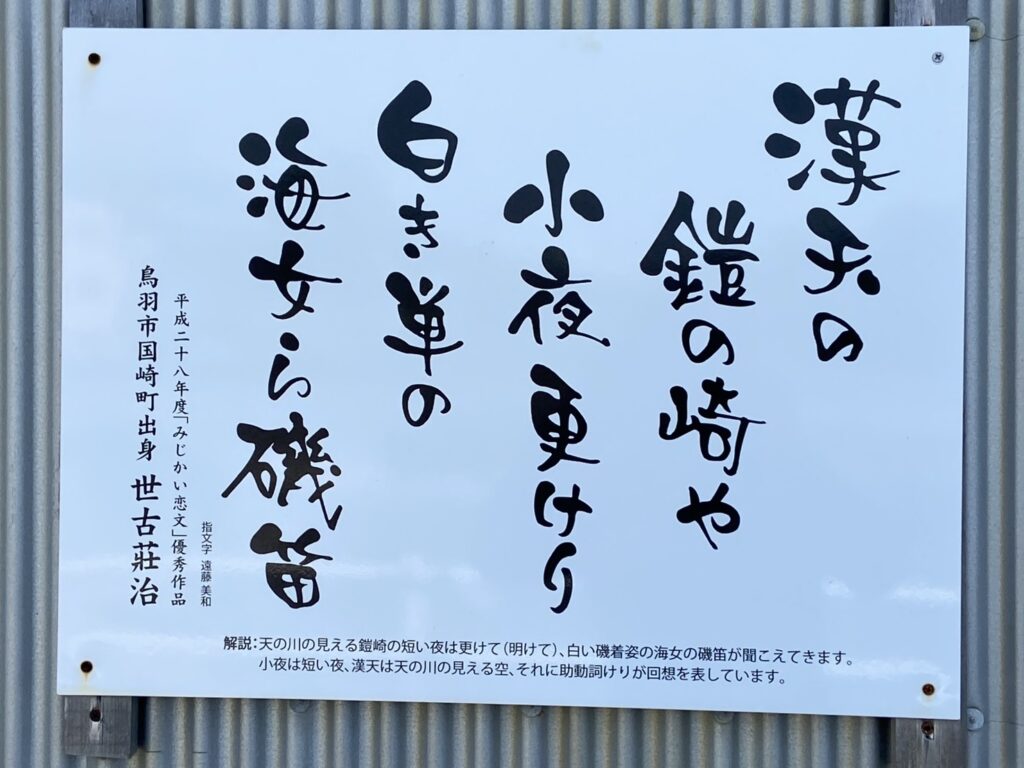 漢天の
鎧の崎や
小夜更けり
白き単の
海女ら磯笛
指文字 遠藤美和
平成二十八年度「みじかい恋文」優秀作品
鳥羽市国崎町出身 世古莊治
解説:天の川の見える鎧崎の短い夜は更けて(明けて)、白い磯着姿の海女の磯笛が聞こえてきます。
小夜は短い夜、漢天は天の川の見える空、それに助動詞けりが回想を表しています。